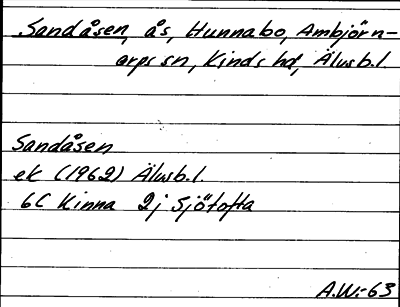 Sandåsen, ås, Hunnabo, Ambjörn-
arps sn, Kinds hd, Älvsb.l.
Sandåsen
ek (1962) Älvsb.l.
6C Kinna 2j Sjötofta
A.W.-63